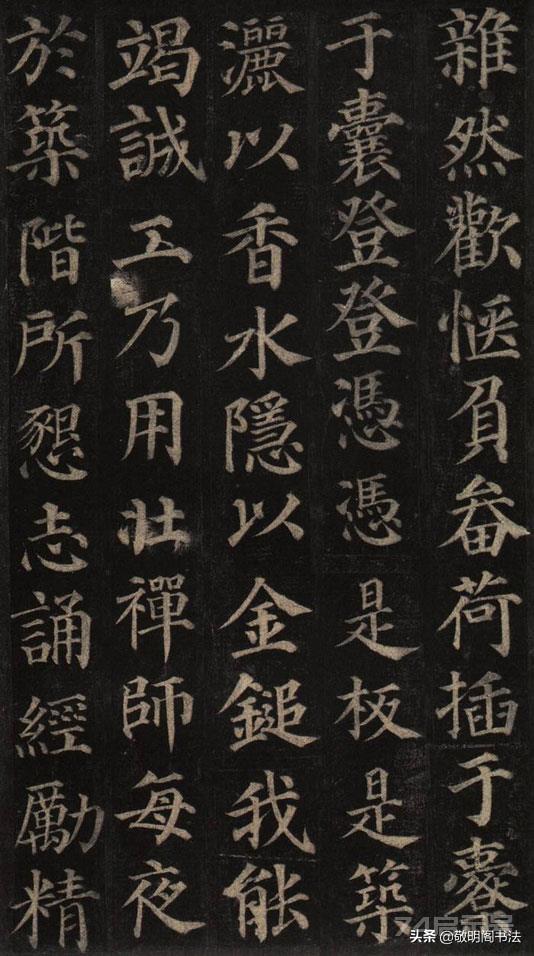 雜然歡愜負畚荷插于橐
于囊登登憑憑是板是築
灑以香水隱以金鎚我能
竭誠工乃用壯禪師每夜
於築階所懇志誦經勵精
头条 @敬明阁书法